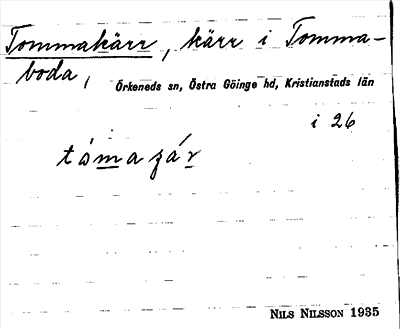 Tommakärr, kärr i Tomma-
boda,
Örkeneds sn, Östra Göinge hd, Kristianstads län
i 26
NILS NILSSON 1935